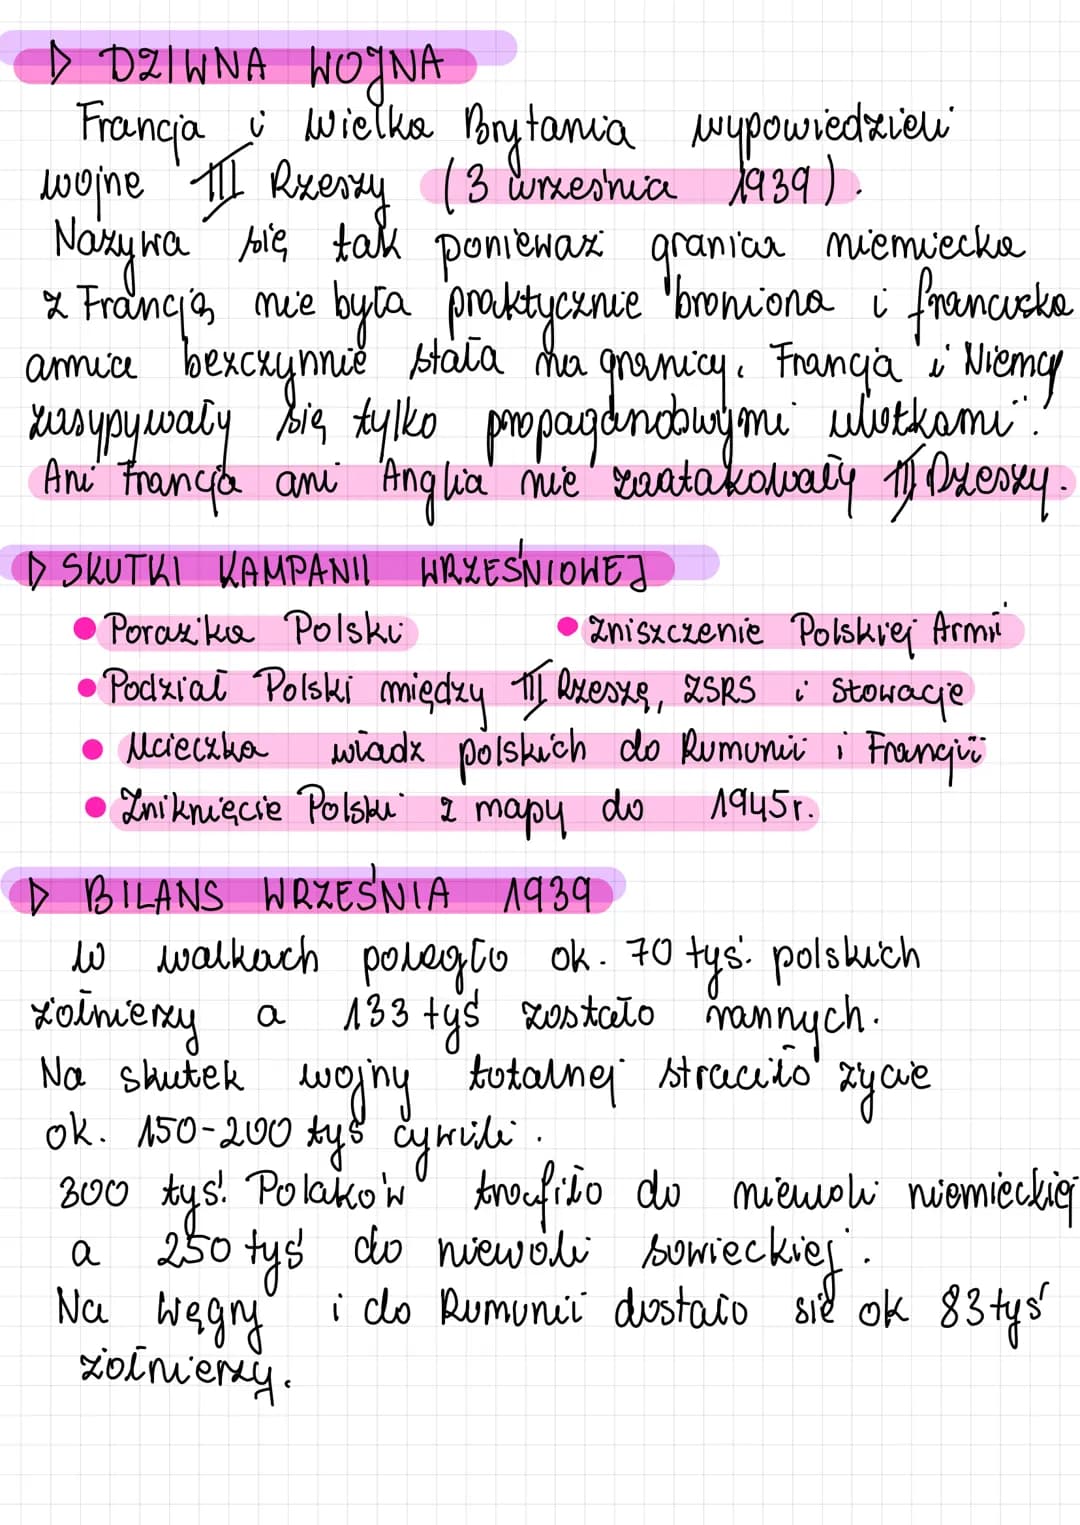 ▷ DZIWNA WOJNA
Francja i Wielka Brytania wypowiedzieli
wojne III Rzeszy (3 września 1939).
Nazywa się tak ponieważ granica niemiecka
z Francją nie była praktycznie broniona i francuska
armia bezczynnie stała na granicy. Francja i Niemcy
zasypywały się tylko propagandowymi ulotkami.
Ani Francja ani Anglia nie zaatakowały III Rzeszy.
▷ SKUTKI KAMPANII WRZEŚNIOWEJ
• Porażka Polski • Zniszczenie Polskiej Armii
• Podział Polski między III Rzeszę, ZSRS i Słowację
• Ucieczka władz polskich do Rumunii i Francji
• Zniknięcie Polski z mapy do 1945r.
▷ BILANS WRZEŚNIA 1939
W walkach poległo ok. 70 tyś. polskich
żołnierzy a 133 tyś zostało rannych.
Na skutek wojny totalnej straciło życie
ok. 150-200 tyś cywili.
300 tyś. Polaków trafiło do niewoli niemieckiej
a 250 tyś do niewoli sowieckiej.
Na Węgry i do Rumunii dostało się ok 83 tyś
żołnierzy.